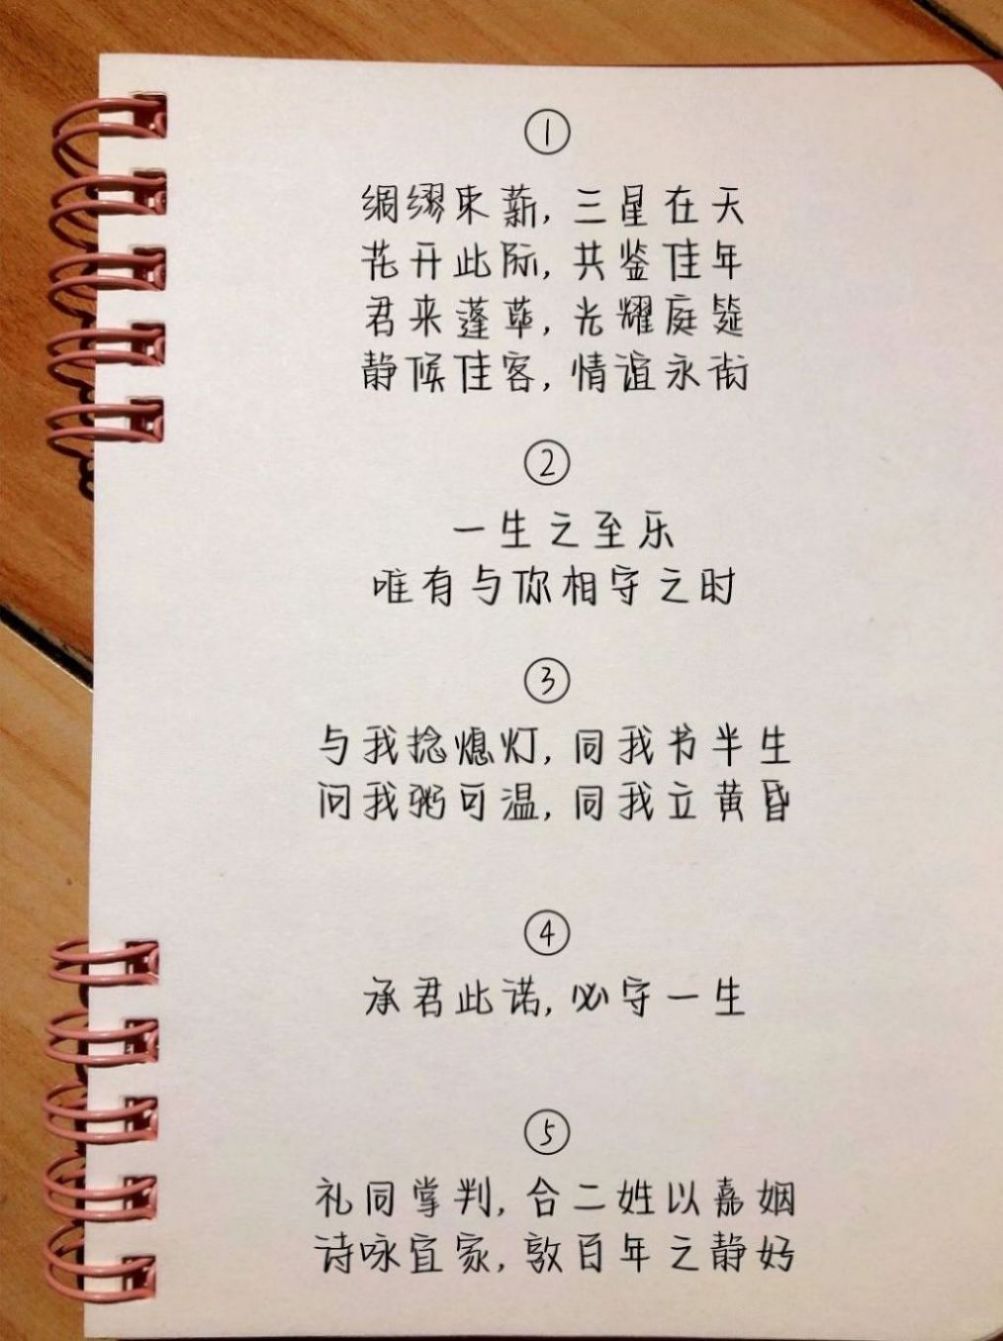 ①
绸缪束薪,三星在天
花开此际,共鉴佳年
君来蓬荜,光耀庭筵
静候佳客,情谊永衔
②
一生之至乐
唯有与你相守之时
③
与我捻熄灯,同我书半生
问我粥可温,同我立黄昏
④
承君此诺,必守一生
⑤
礼同掌判,合二姓以嘉姻
诗咏宜家,敦百年之静好